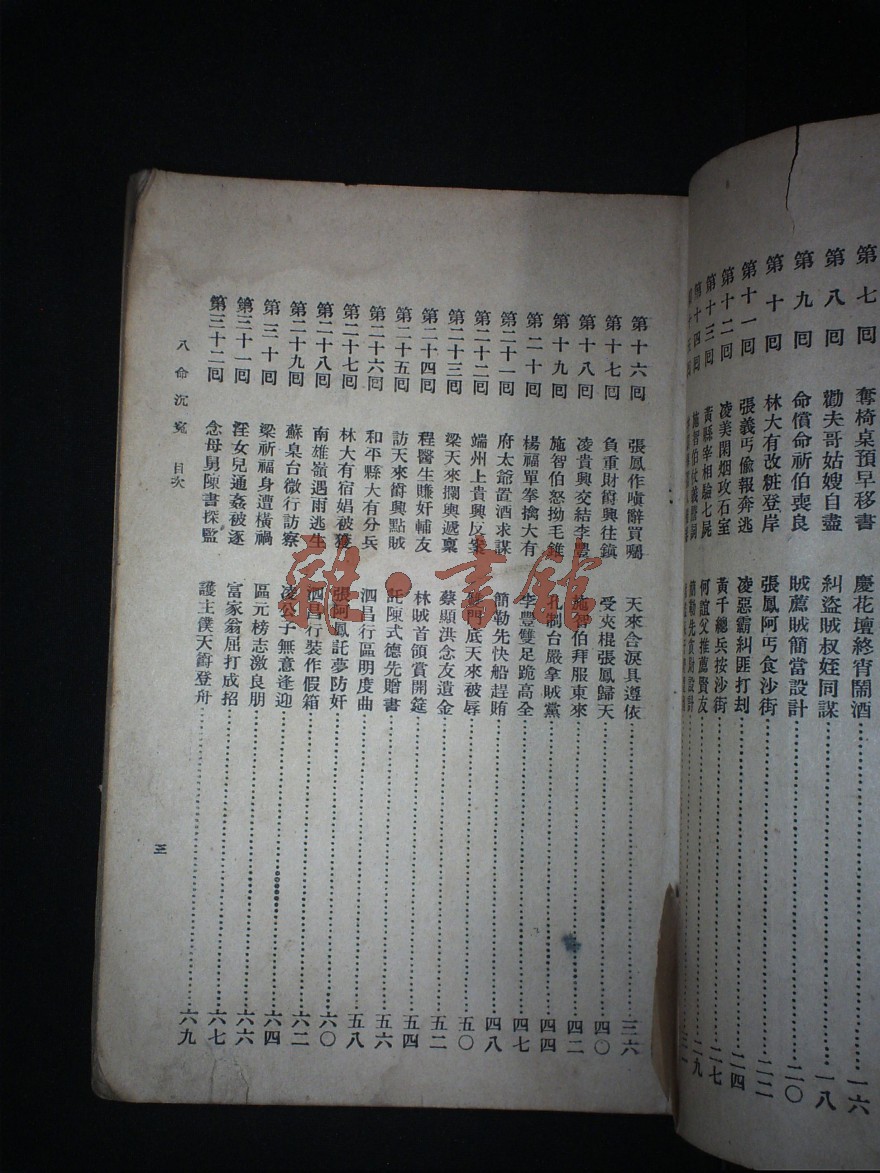 第七囘 奪椅桌預早移書 慶花壇終宵鬧酒 一六
第八囘 勸夫哥姑嫂自盡 糾盜賊叔姪同謀 一八
第九囘 命償命祈伯喪良 賊薦賊簡當設計 二〇
第十囘 林大有改粧登岸 張鳳阿丐食沙街 二二
第十一囘 張義丐偷報奔逃 凌惡霸糾匪打刦 二四
第十二囘 凌美閑烟攻石室 黃千總兵按沙街 二七
第十三囘 黃縣宰相驗七屍 何誼父推薦賢友 二九
十四囘 施智伯仗義 詞 簡勒先貪財設計
第十六囘 張鳳作嗔辭買囑 天來含淚具遵依……三六
第十七囘 負重財爵興往鎮 受夾棍張鳳歸天……四〇
第十八囘 凌貴興交結李豐 施智伯拜服東來……四二
第十九囘 施智伯怒拗毛錐 孔制台嚴拿賊黨……四四
第二十囘 楊福單拳擒大有 李豐雙足跪高全……四七
第二十一囘 府太爺置酒求謀 簡勒先快船趕賄……四八
第二十二囘 端州上貴興反案 雙門底天來被辱……五〇
第二十三囘 梁天來攔輿遞稟 蔡顯洪念友遺金……五二
第二十四囘 程醫生賺奸輔友 林賊首領賞開筵……五四
第二十五囘 訪天來爵興點賊 託陳式德先贈書……五六
第二十六囘 和平縣大有分兵 泗昌行區明度曲……五八
第二十七囘 林大有宿娼被獲 張阿鳳託夢防奸……六〇
第二十八囘 南雄嶺遇雨逃生 泗昌行裝作假箱……六二
第二十九囘 蘇臬台微行訪察 凌公子無意逢迎……六四
第三十囘 梁祈福身遭橫禍 區元榜志激良朋……六六
第三十一囘 淫女兒通姦被逐 富家翁屈打成招……六七
第三十二囘 念母舅陳書探監 護主僕天爵登舟……六九
八命沉寃 目次
三
雜·書館